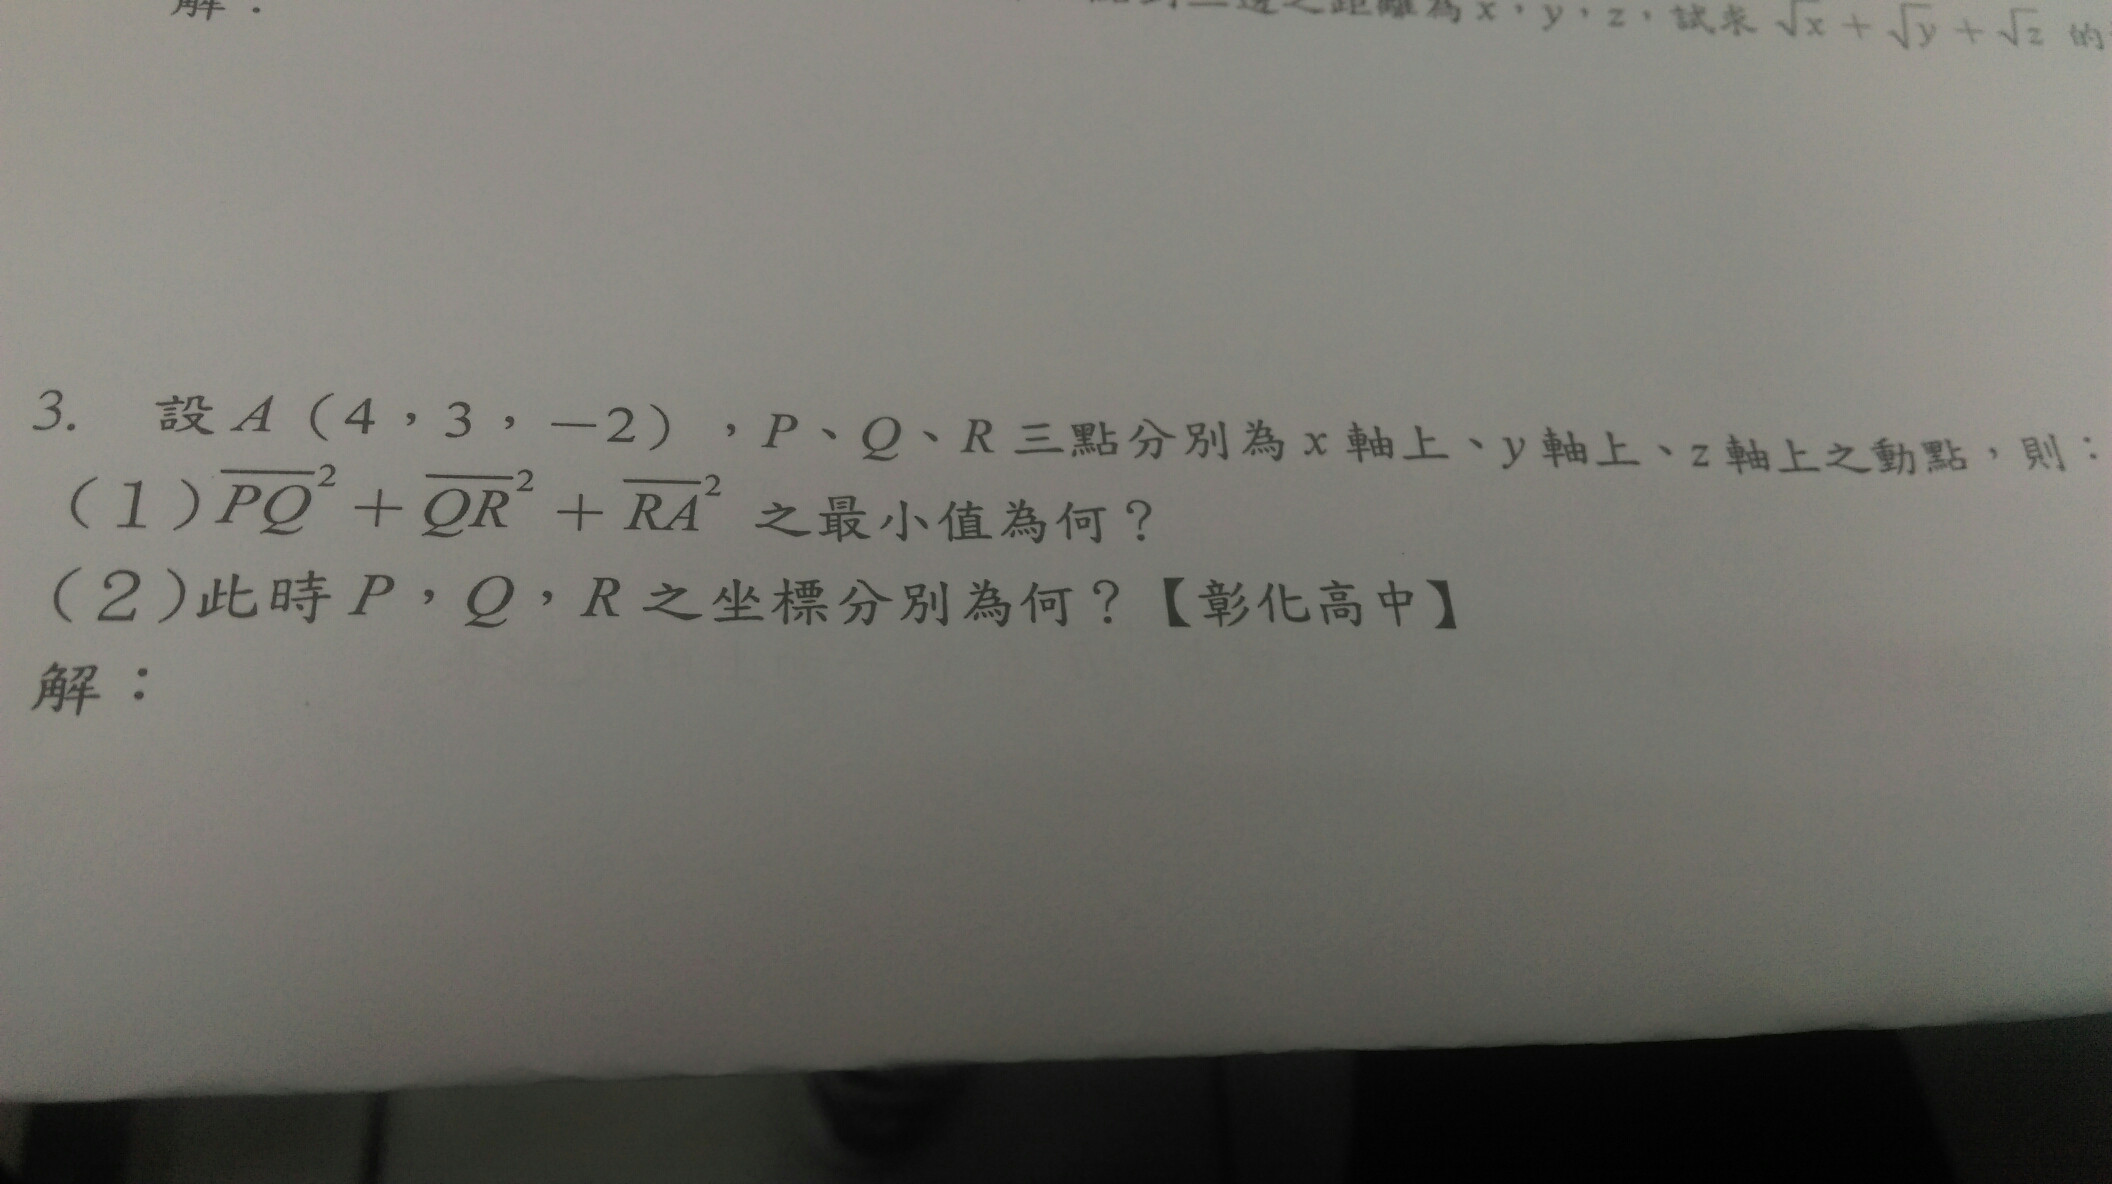 解：
之距離為 x，y，z，試求 √x + √y + √z 的
3. 設 A（4，3，−2），P、Q、R 三點分別為 x 軸上、y 軸上、z 軸上之動點，則：
（1）\overline{PQ}² + \overline{QR}² + \overline{RA}² 之最小值為何？
（2）此時 P，Q，R 之坐標分別為何？【彰化高中】
解：